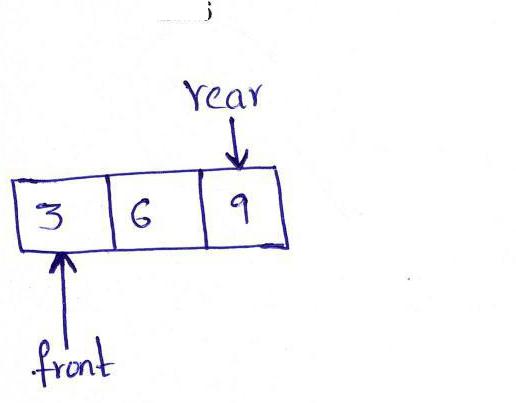 rear
3 6 9
front